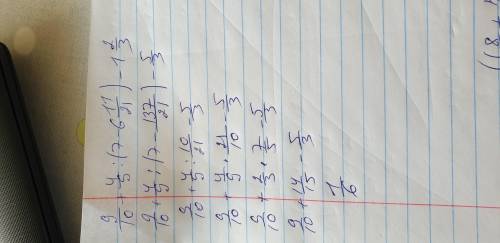 9/10 + 4/9 : (7 - 6 11/21) - 1 2/3
9/10 + 4/9 : (7 - 137/21) - 5/3
9/10 + 4/9 : 10/21 - 5/3
9/10 + 4/9 · 21/10 - 5/3
9/10 + 2/3 · 7/5 - 5/3
9/10 + 14/15 - 5/3
1/6
((8